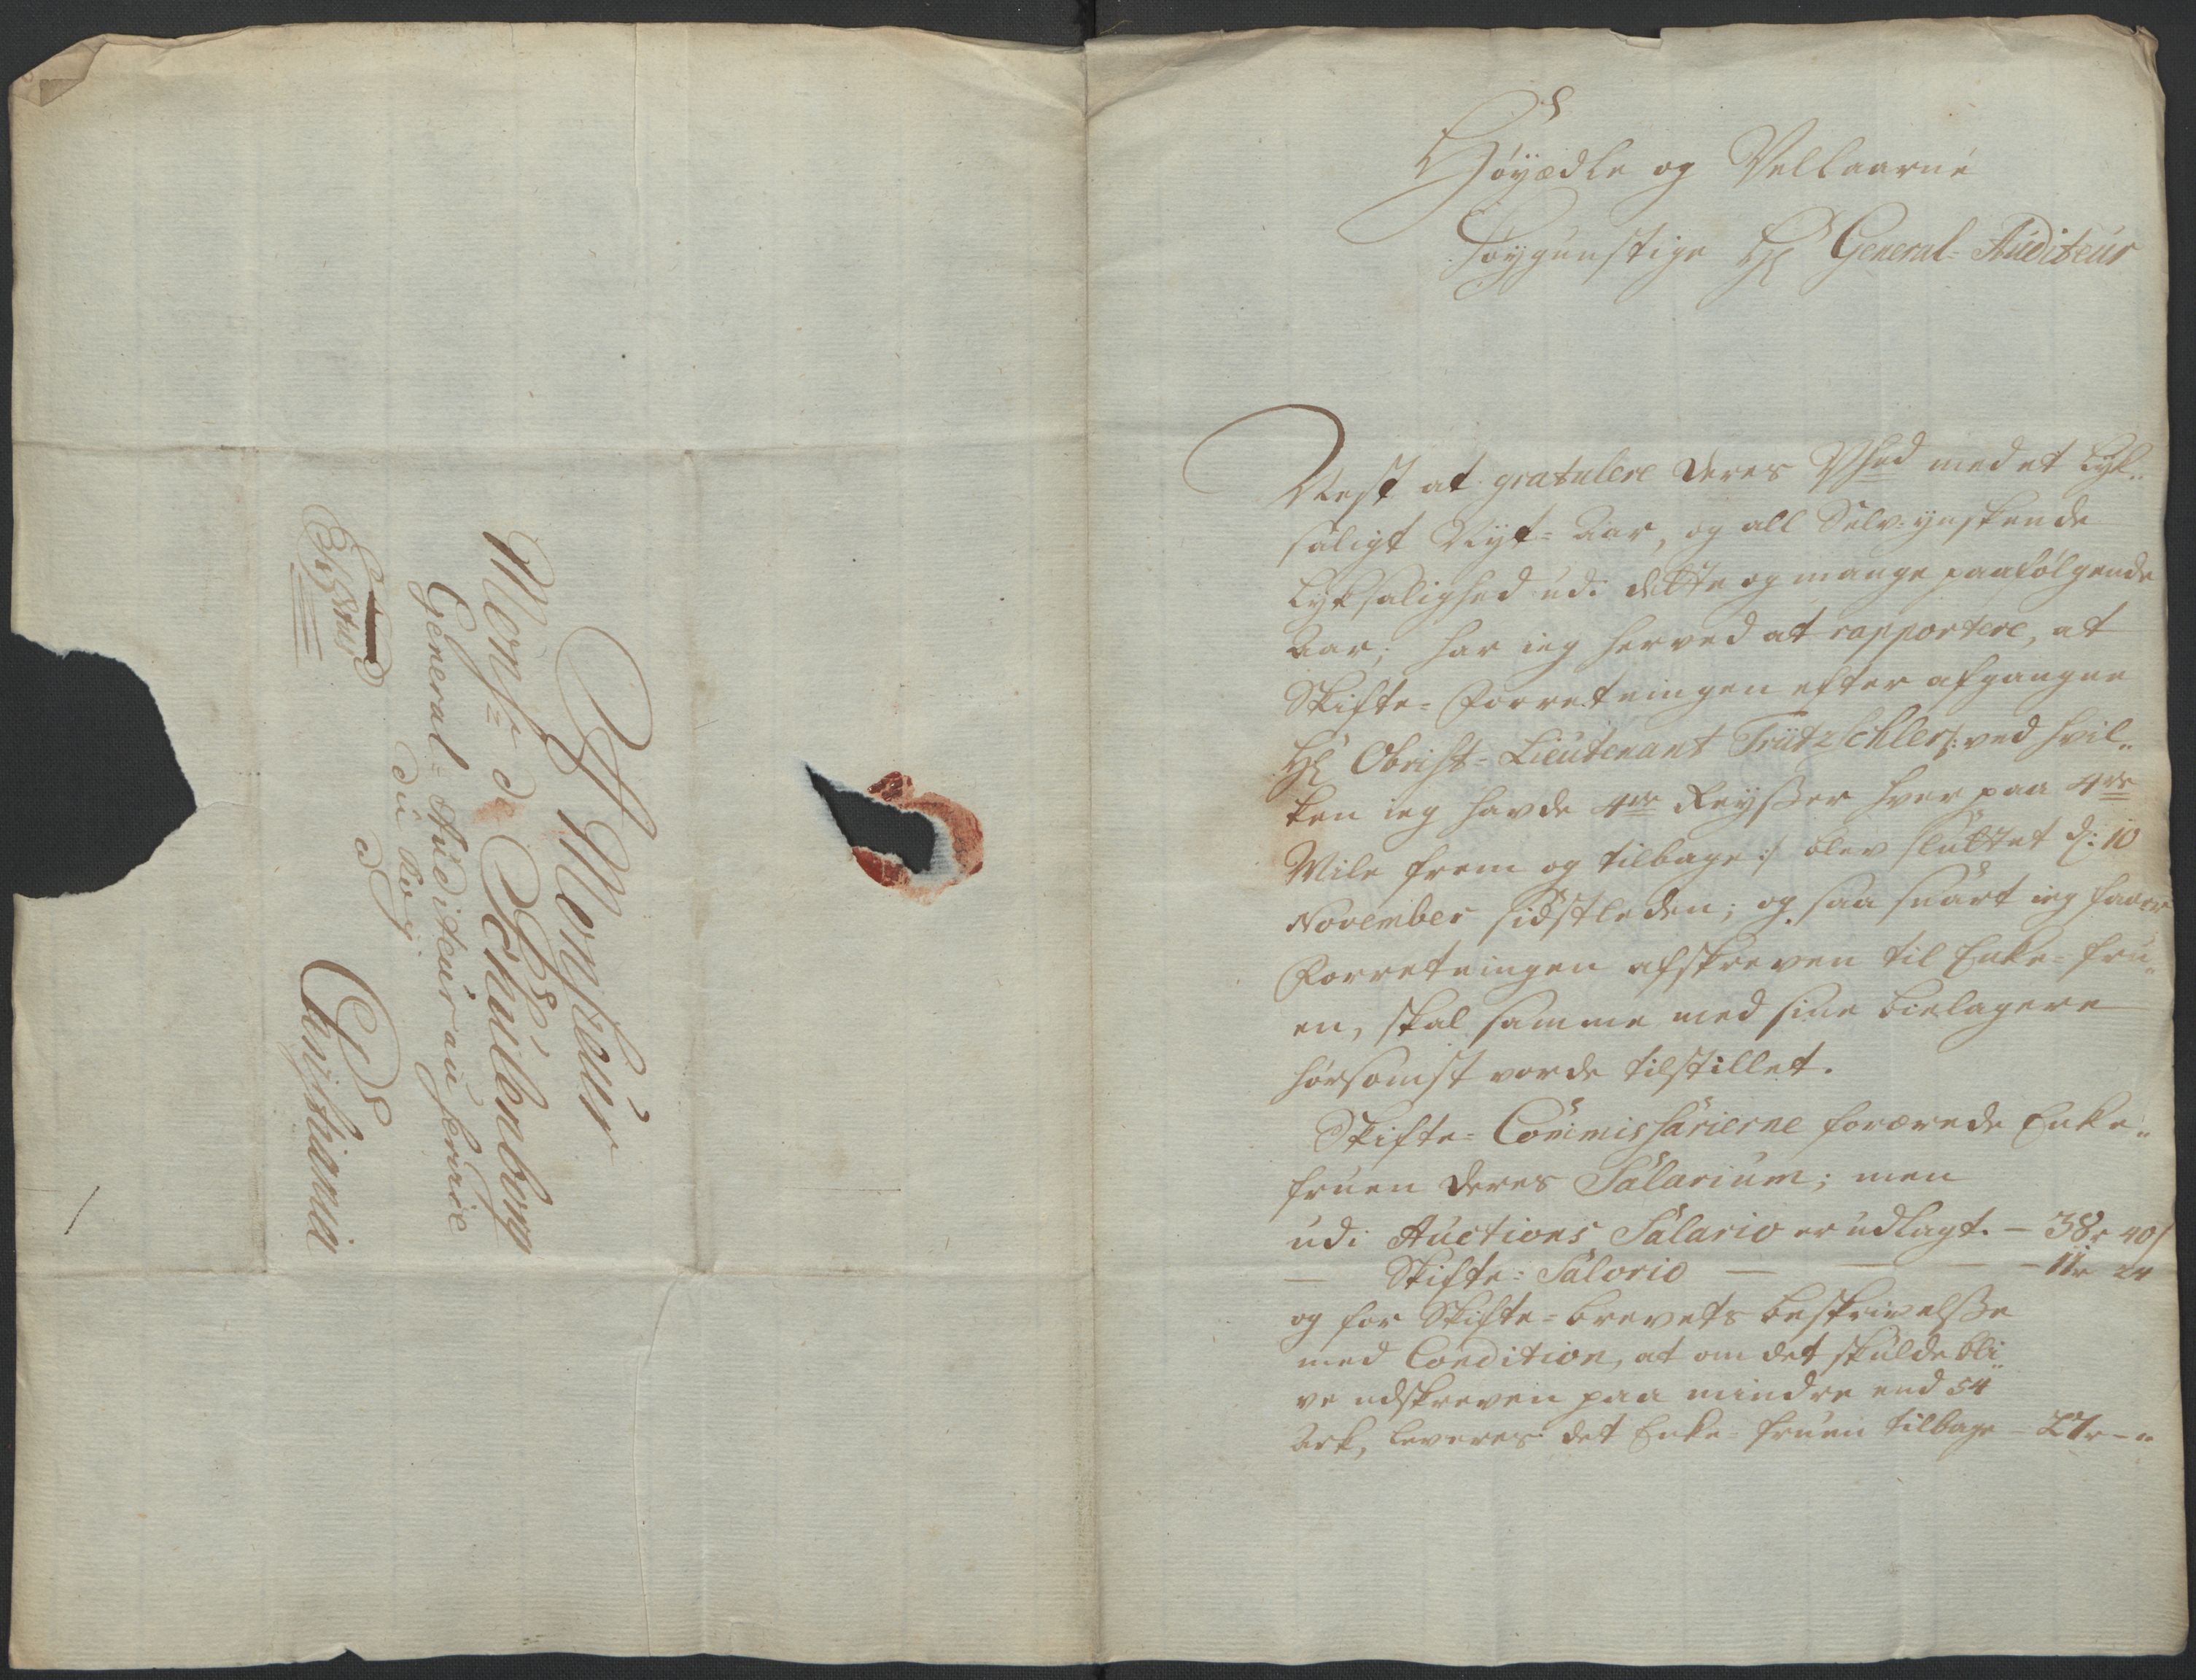 A Monsieur
Monsr: de Schuilenborg
General-Auditeur au service
du Roy.
Christiania
Høyædle og Velbaarne
Høygunstige Hr General-Auditeur
Nest at gratulere Deres Vhed med et Lyk„
saligt Nyt-Aar, og all Selv-ynskende
Lyksalighed udi dette og mange paafølgende
Aar; har ieg herved at rapportere, at
Skifte-Forretningen efter afgangne
Hr Obrist-Lieutenant Trützschler /: ved hvil„
ken ieg havde 4re Reyßer hver paa 4re
Mile frem og tilbage :/ blev sluttet d: 10
November sidstleden; og saa snart ieg faaer
Forretningen afskreven til Enke-Fru„
en, skal samme med sine bielagere
hørsomst vorde tilstillet.
Skifte-Commissarierne forærede Enke„
fruen deres Salarium; men
udi Auctions Salario er udlagt. – 38r 40s
— Skifte-Salario — — — 11r 24
og for Skifte-brevets beskrivelße
med Condition, at om det skulde bli„
ve udskreven paa mindre end 54
Ark, leveres det Enke-fruen tilbage – 27r – „